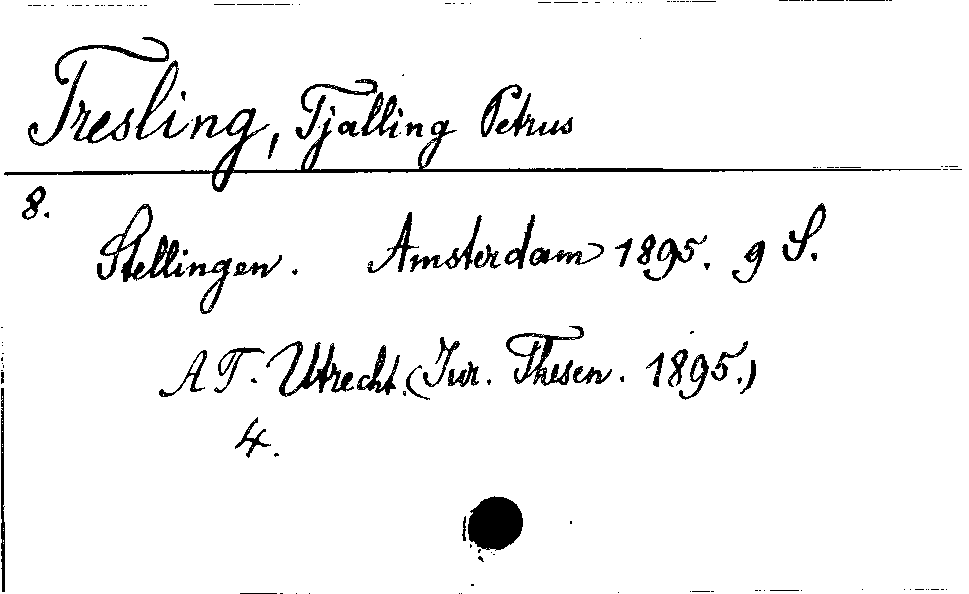 Tresling, Tjalling Petrus
8.
Stellingen. Amsterdam 1895. 9 S.
AT. Utrecht. (Jur. Thesen. 1895.)
4.